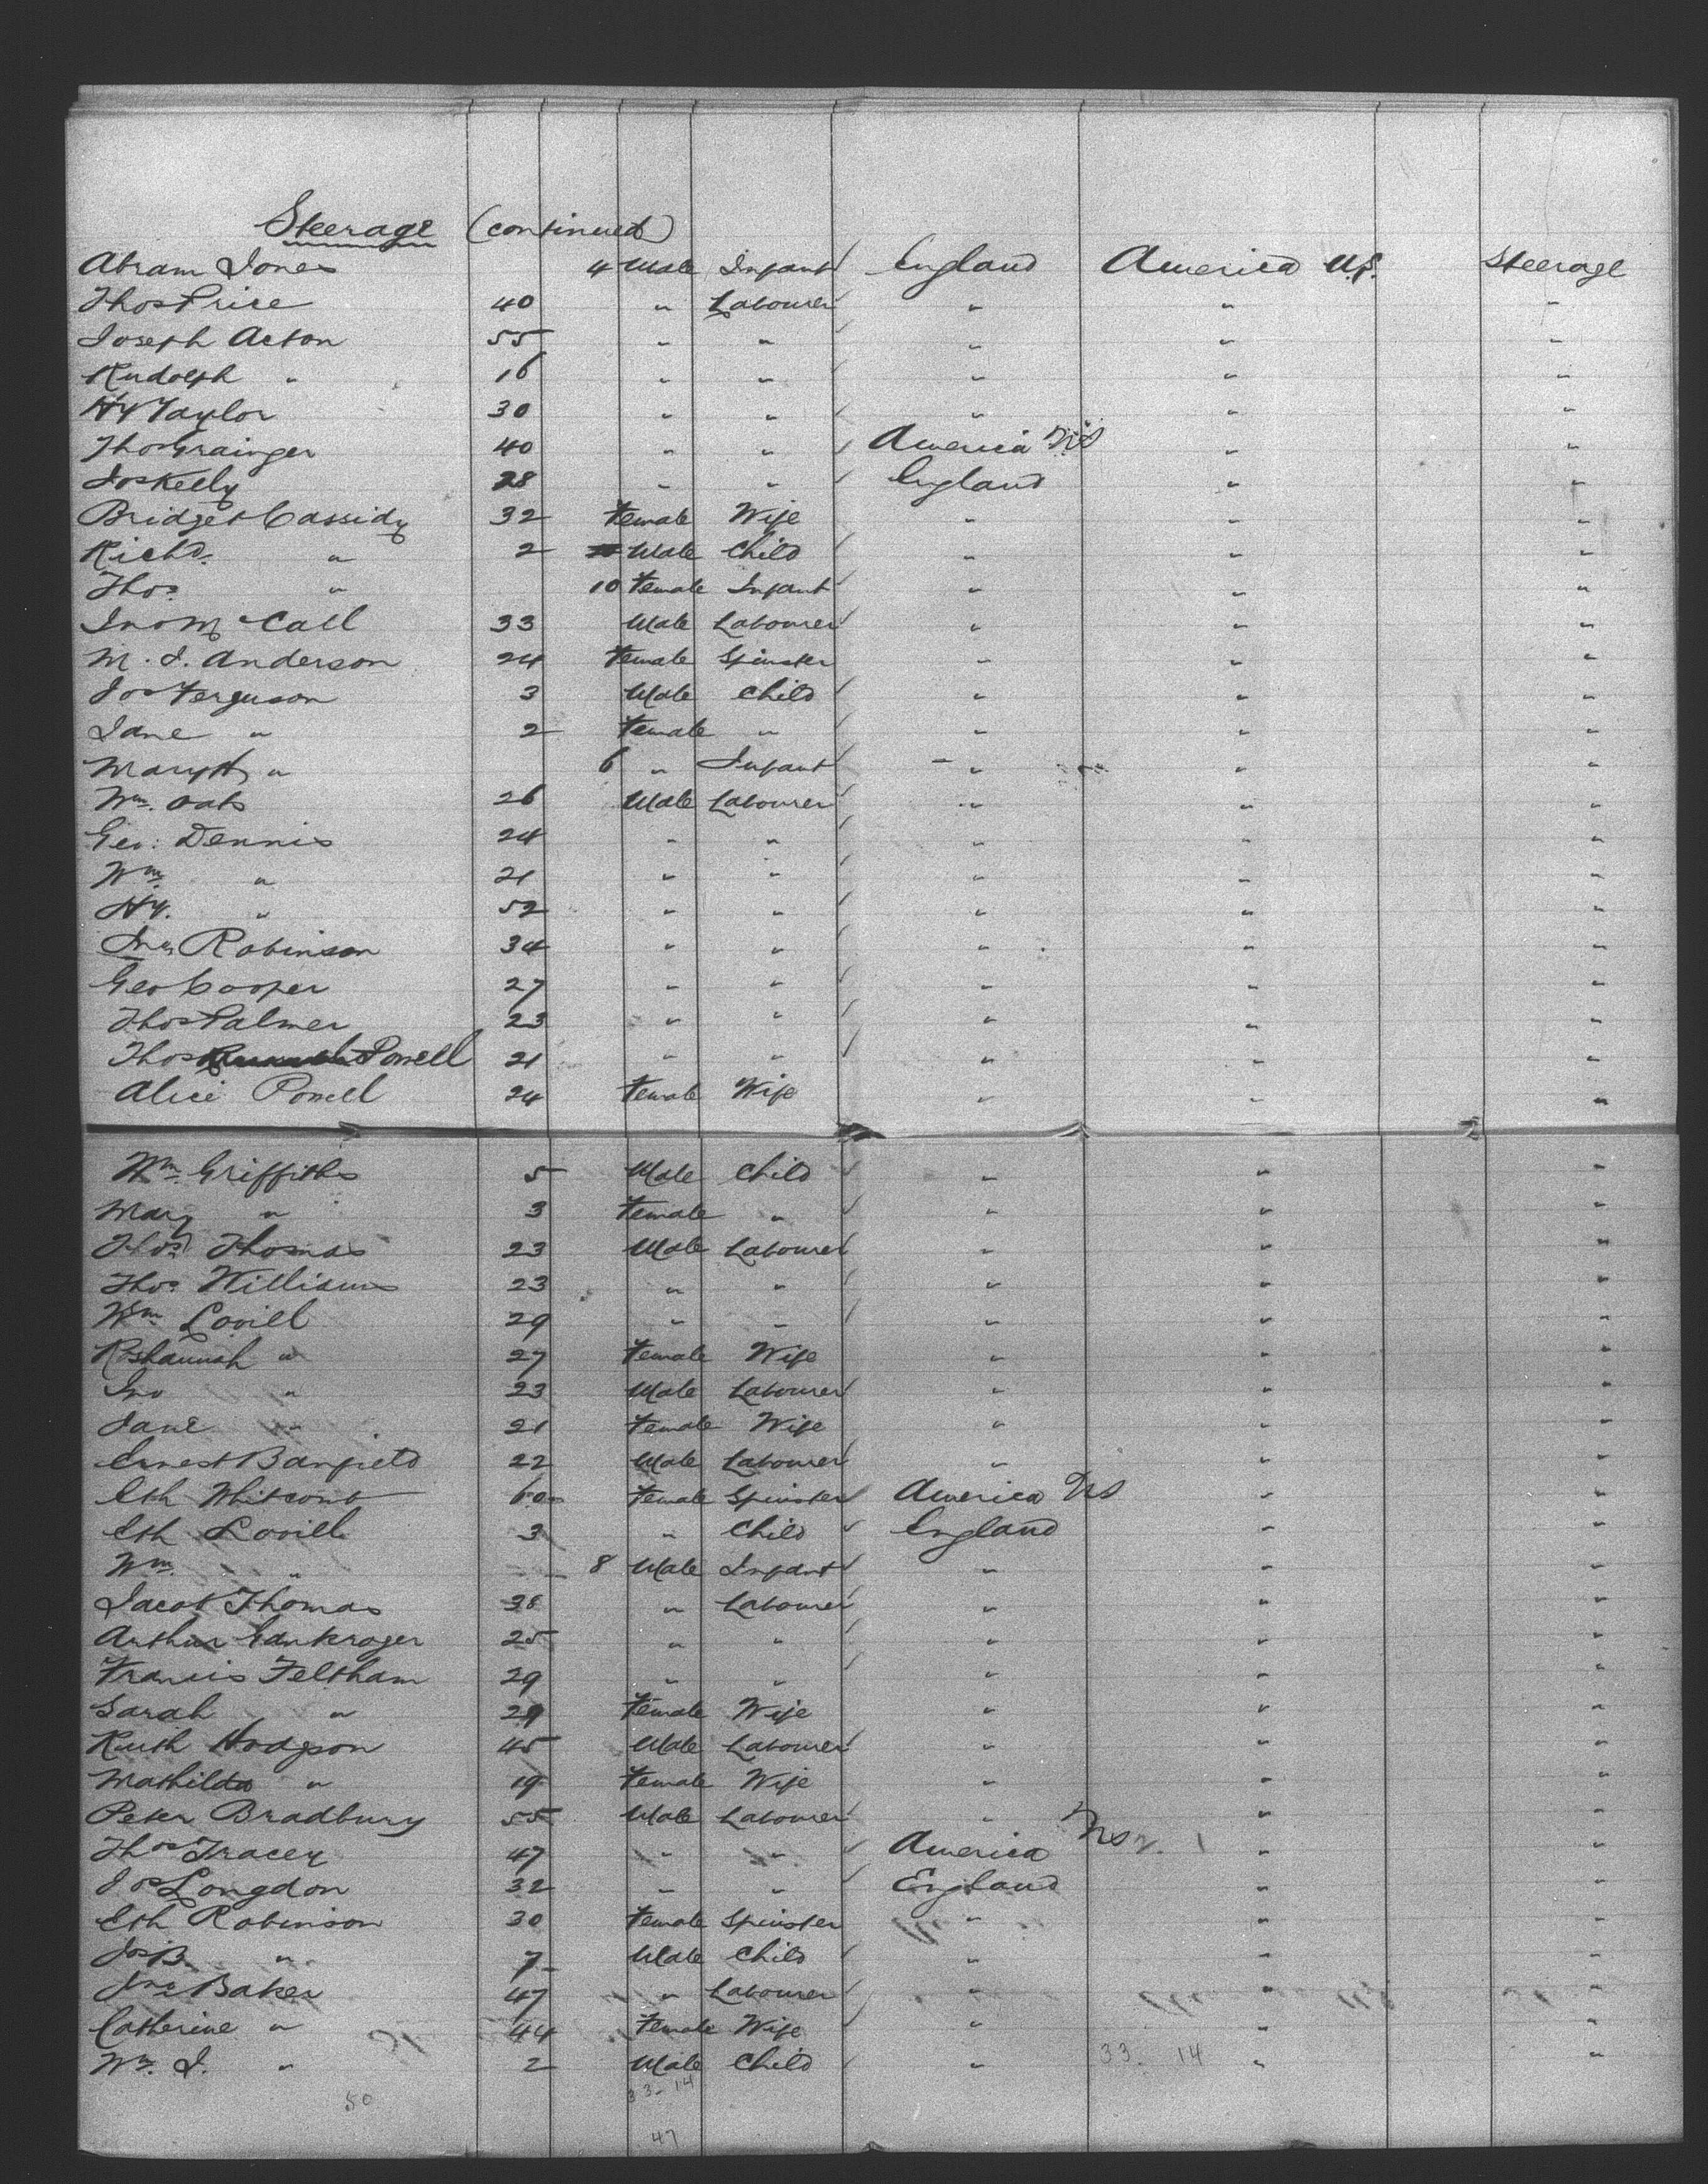 Steerage (continued)
Abram Jones 4 Male Infant England America U.S. Steerage
Thos Price 40 " Labourer " " "
Joseph Acton 55 " " " " "
Rudolph " 16 " " " " "
Hy Taylor 30 " " " " "
Thos Grainger 40 " " America US " "
Jos Kelly 28 " " England " "
Bridget Cassidy 32 Female Wife " " "
Richd. " 2 Male Child " " "
Thos. " 10 Female Infant " " "
Jno McCall 33 Male Labourer " " "
M. J. Anderson 24 Female Spinster " " "
Jos Ferguson 3 Male Child " " "
Jane " 2 Female " " " "
Mary H " 6 " Infant " " "
Wm. Oats 26 Male Labourer " " "
Geo: Dennis 24 " " " " "
Wm. " 21 " " " " "
Hy. " 52 " " " " "
Jno Robinson 34 " " " " "
Geo Cooper 27 " " " " "
Thos Palmer 23 " " " " "
Thos Powell 21 " " " " "
Alice Powell 24 Female Wife " " "
Wm. Griffiths 5 Male Child " " "
Mary " 3 Female " " " "
Thos. Thomas 23 Male Labourer " " "
Thos. Williams 23 " " " " "
Wm Lovill 29 " " " " "
Roshannah " 27 Female Wife " " "
Jno " 23 Male Labourer " " "
Jane " 21 Female Wife " " "
Ernest Banfield 22 Male Labourer " " "
Eth Whitcomb 60 Female Spinster America US " "
Eth Lovill 3 " Child England " "
Wm. " 8 Male Infant " " "
Jacob Thomas 38 " Labourer " " "
Arthur Gaukroger 25 " " " " "
Francis Feltham 29 " " " " "
Sarah " 29 Female Wife " " "
Ruth Hodgson 45 Male Labourer " " "
Mathilda " 19 Female Wife " " "
Peter Bradbury 55 Male Labourer " " "
Thos Tracey 47 " " America US " "
Jos Longdon 32 " " England " "
Eth Robinson 30 Female Spinster " " "
Jos B. " 7 Male Child " " "
Jno Baker 47 " Labourer " " "
Catherine " 44 Female Wife " " "
Wm. J. " 2 Male Child " " "
33. 14
33-14
50
47